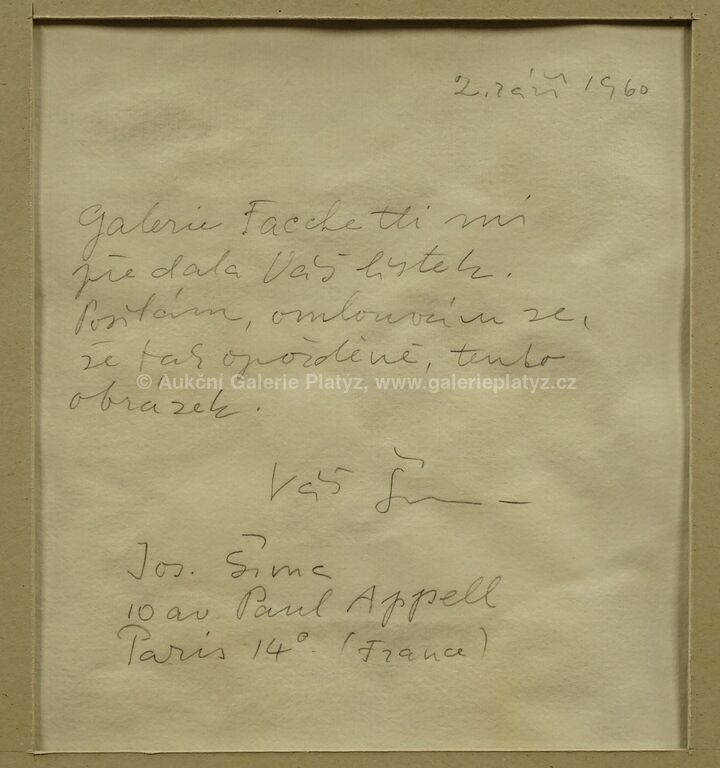 2. září 1960
Galerie Facchetti mi
předala Váš lístek.
Posílám, omlouvám se,
že tak opožděně, tento
© Aukční Galerie Platýz, www.galerieplatyz.cz
obrázek.
Váš Šíma
Jos. Šíma
10 av Paul Appell
Paris 14° (France)